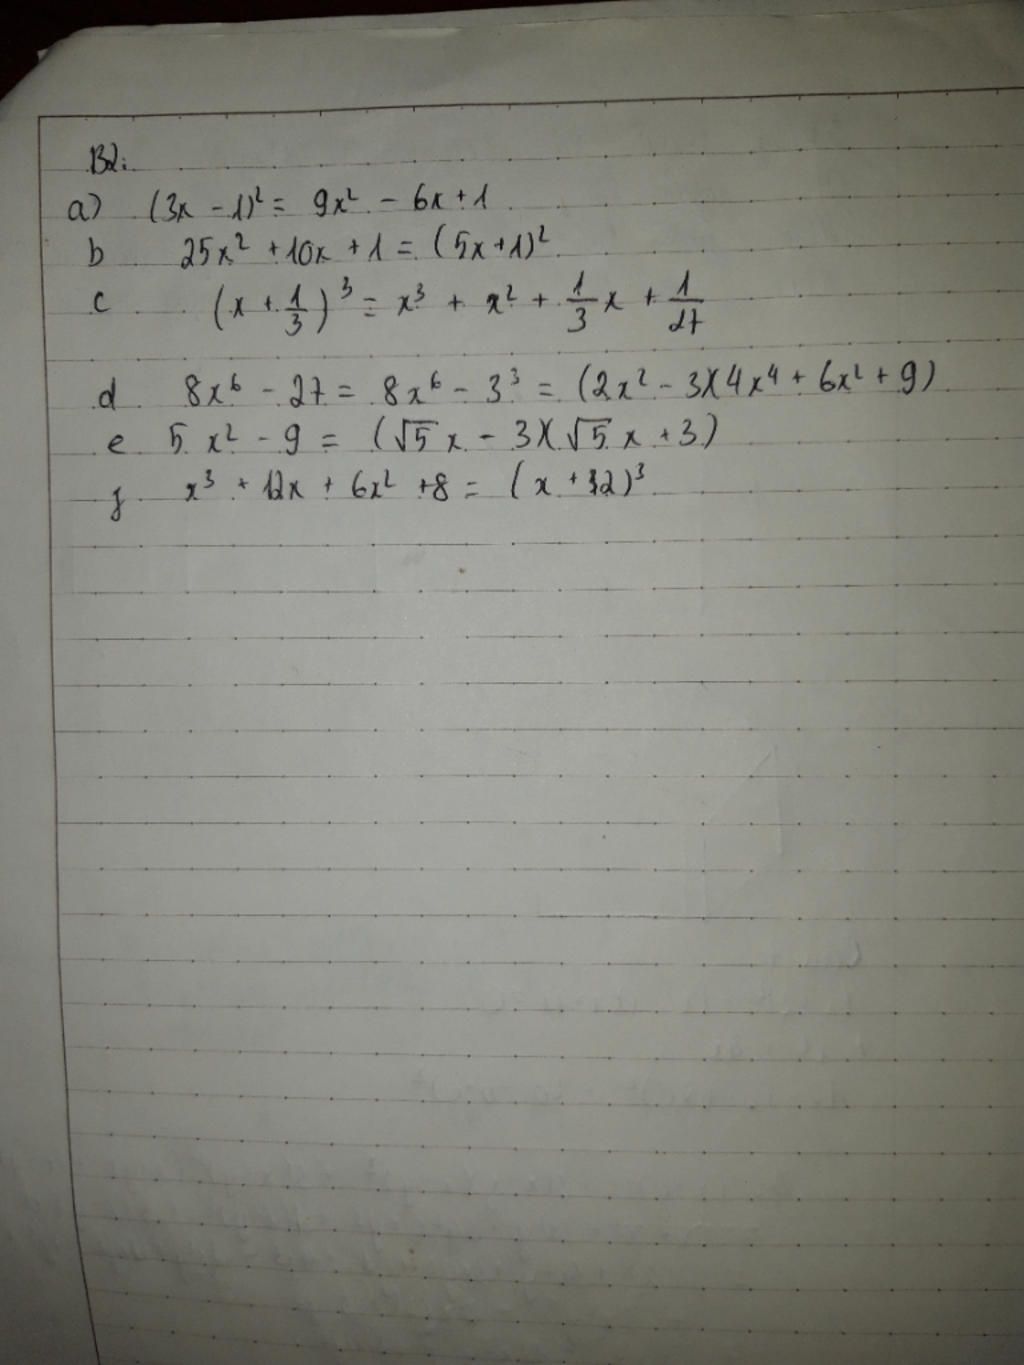 B2:
a) (3x - 1)² = 9x² - 6x + 1
b 25x² + 10x + 1 = (5x + 1)²
c (x + 1/3)³ = x³ + x² + 1/3 x + 1/27
d 8x⁶ - 27 = 8x⁶ - 3³ = (2x² - 3)(4x⁴ + 6x² + 9)
e 5x² - 9 = (√5 x - 3)(√5 x + 3)
f x³ + 12x + 6x² + 8 = (x + 2)³